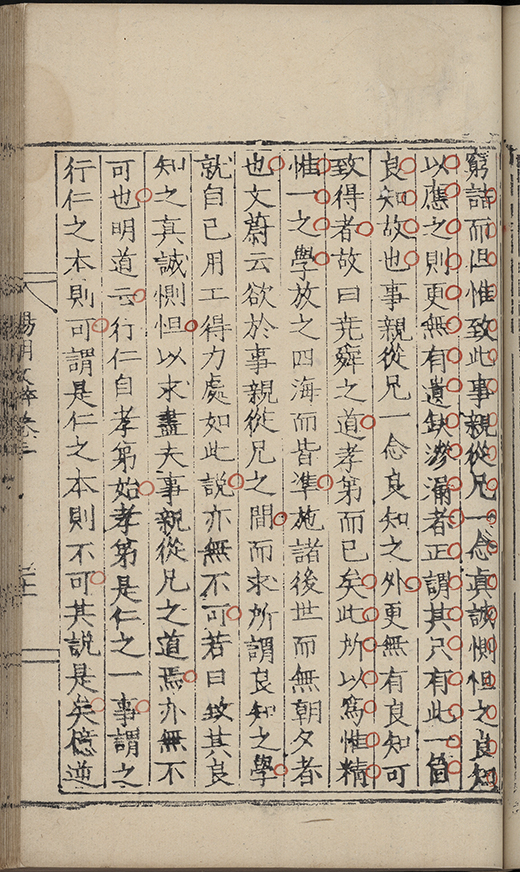 窮詰而但惟致此事親從兄一念真誠惻怛之良知
以應之則更無有遺缺滲漏者正謂其只有此一箇
良知故也事親從兄一念良知之外更無有良知可
致得者故曰堯舜之道孝弟而已矣此所以為惟精
惟一之學放之四海而皆準施諸後世而無朝夕者
也文蔚云欲於事親從兄之間而求所謂良知之學
就自己用工得力處如此說亦無不可若曰致其良
知之真誠惻怛以求盡夫事親從兄之道焉亦無不
可也明道云行仁自孝弟始孝弟是仁之一事謂之
行仁之本則可謂是仁之本則不可其說是矣億逆
陽明文粹卷三